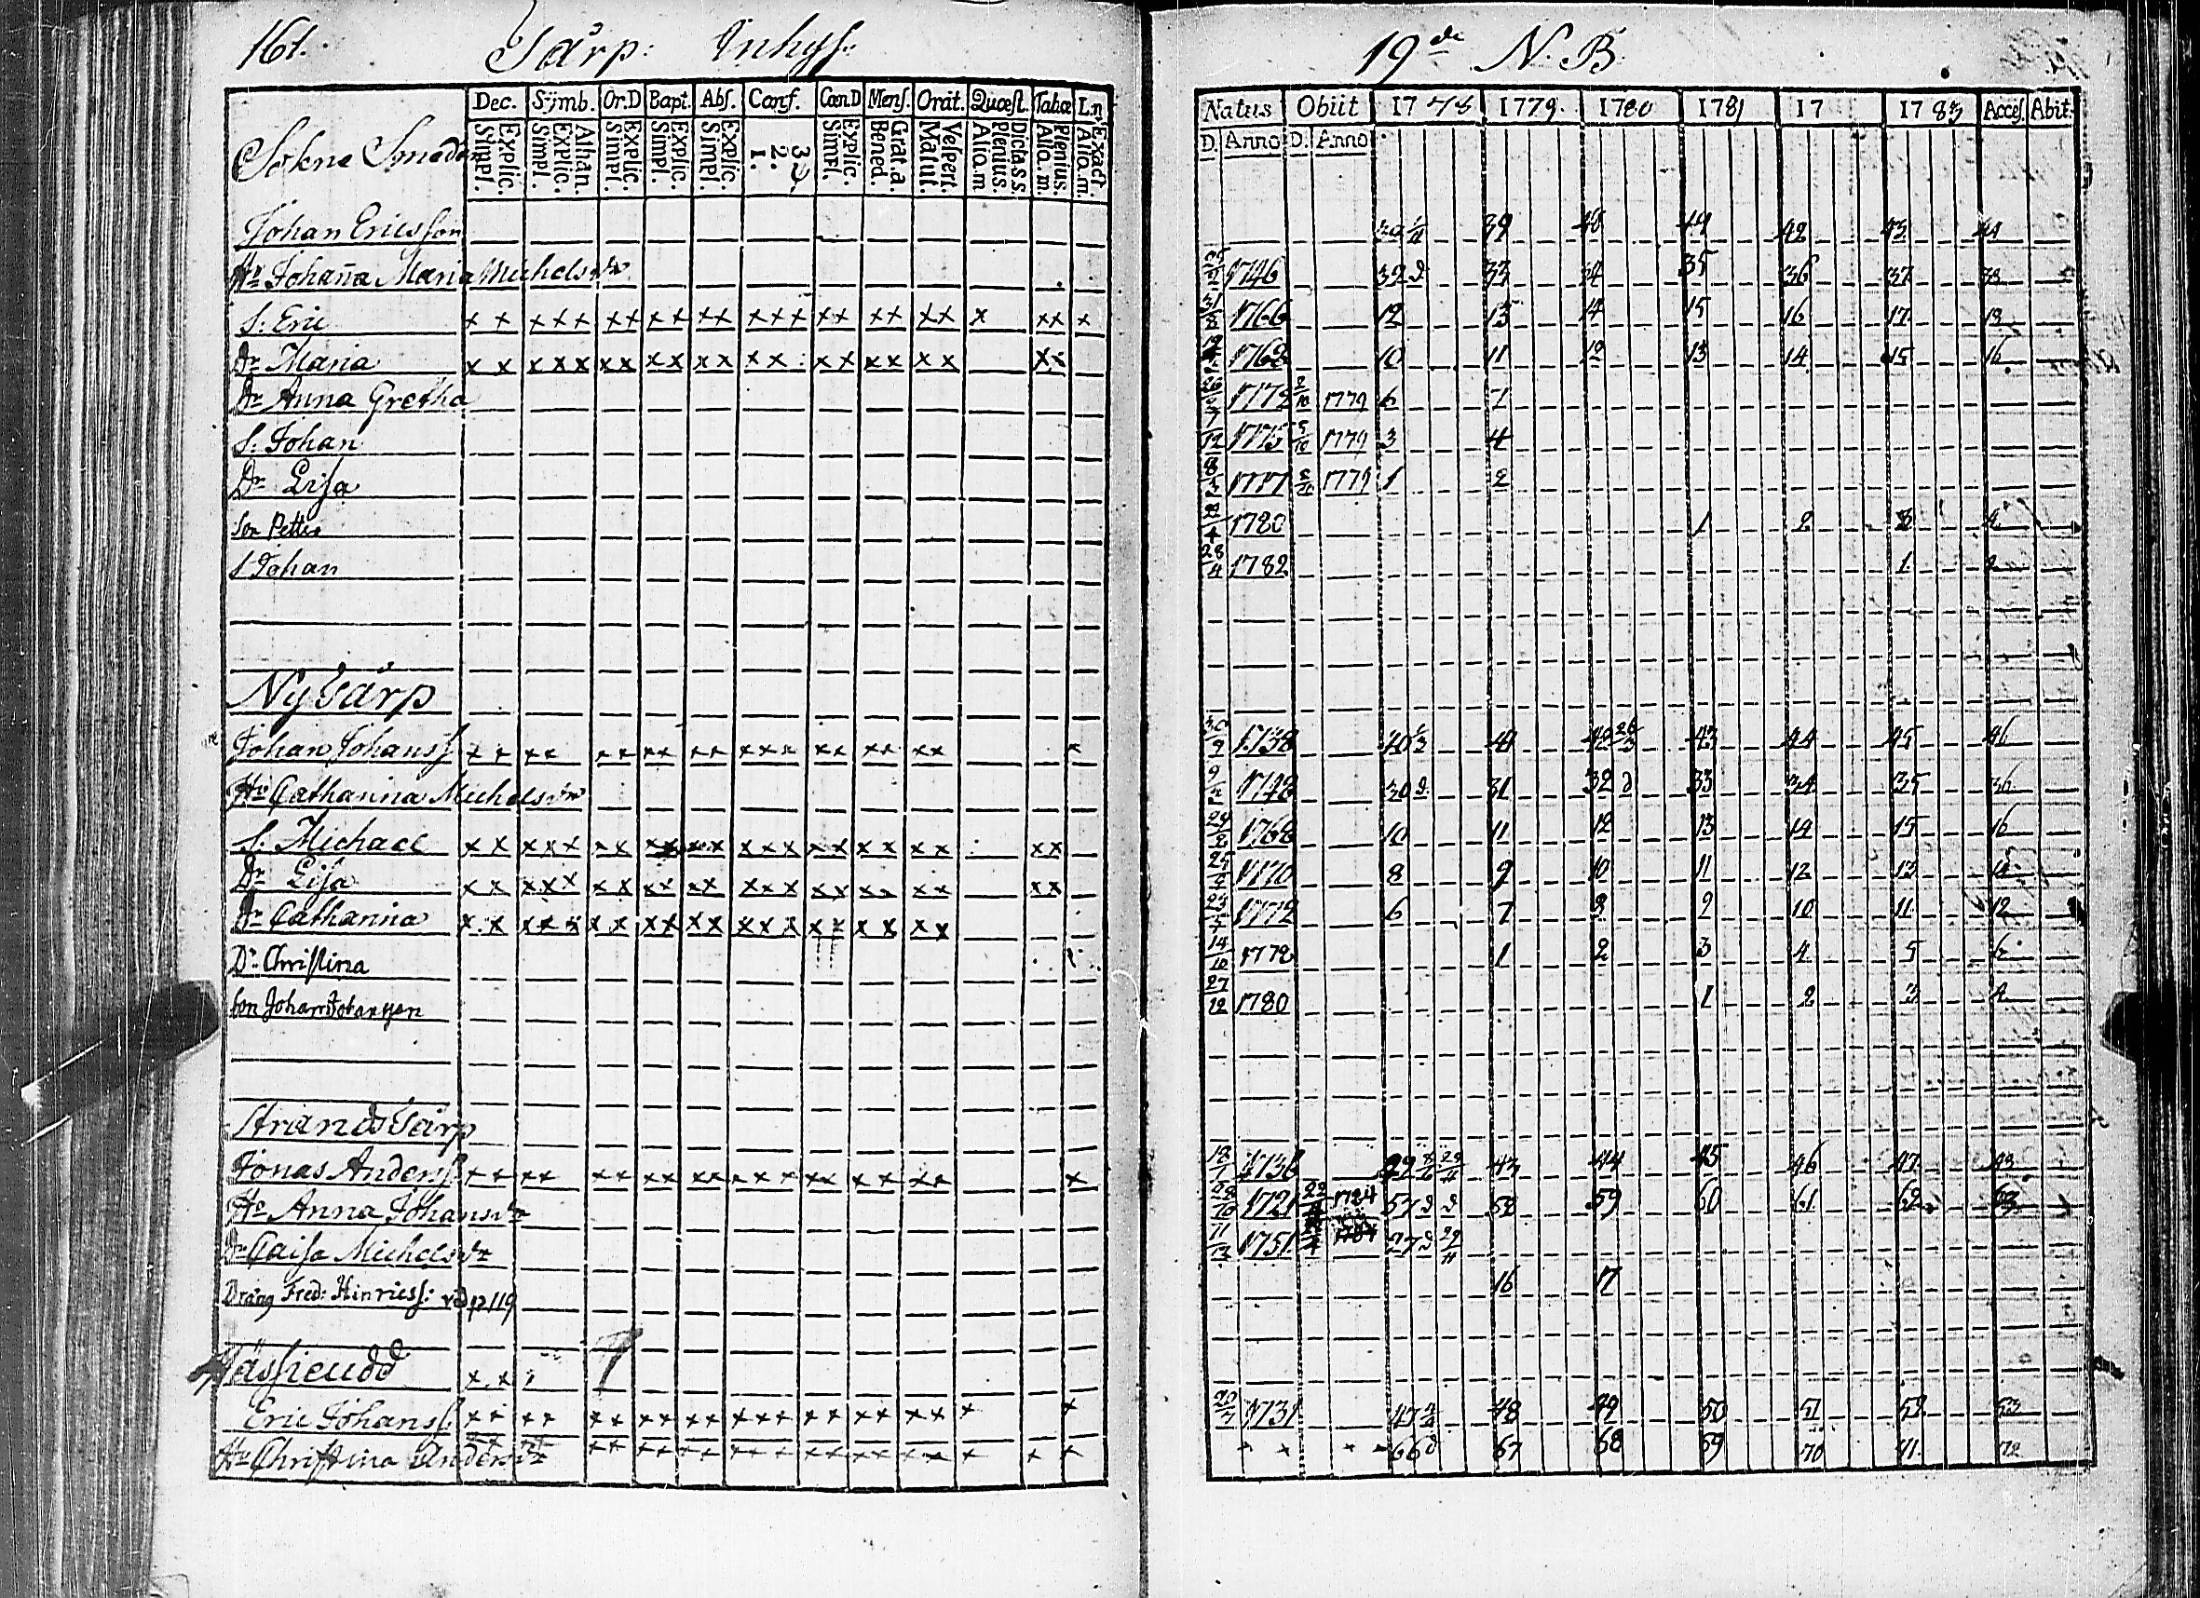 161. Tårp: Inhys.
Dec. Sÿmb. Or.D Bapt. Abs. Conf. Cœn.D Mens. Orat. Quœst. Tabœ Ln.
Simpl. Explic. Simpl. Explic. Athan. Simpl. Explic. Simpl. Explic. Simpl. Explic. 1. 2. 3. Simpl. Explic. Bened. Grat.a. Matut. Vespert. Alio.m Plenius. Dicta.s.s Alio.m. Plenius. Alio.m. Exact.
Sokne Smeden
Johan Ericsson
Hu Johaña Maria Michelsdr
S. Eric
Dr Maria
Dr Anna Gretha
S. Johan
Dr Lisa
Son Petter
S Johan
Nÿtårp
Johan Johanss
Hu Catharina Michelsdr
S. Michael
Dr Lisa
Dr Catharina
Dr Christina
Son Johan Johansson
Strandtårp
Jonas Anderss
Hu Anna Johansdr
Dr Caisa Michelsdr
Dräng Fred: Hinricss: vid p 119
Eric Johanss
Hu Christina Andersdr
19de N. B.
Natus Obiit 17 78 1779. 1780 1781 17 1783 Acces. Abit.
D. Anno D. Anno
39 40 41 42 43 44
1746 32 33 34 35 36 37 38
31/8 1766 12 13 14 15 16 17 18
1768 10 11 12 13 14 15 16
1772 2/10 1779 6 7
1775 5/10 1779 3 4
1777 1779 1 2
1780 1 2 3 4
28/4 1782 1 2
30/9 1738 40 41 42 43 44 45 46
1748 30 31 32 33 34 35 36
1768 10 11 12 13 14 15 16
1770 8 9 10 11 12 13 14
1772 6 7 8 9 10 11 12
14/10 1778 1 2 3 4 5 6
27/12 1780 1 2 3 4
1736 42 43 44 45 46 47 48
28/10 1721 1784 57 58 59 60 61 62 63
1751 27
16 17
1731 47 48 49 50 51 52 53
66 67 68 69 70 71 72